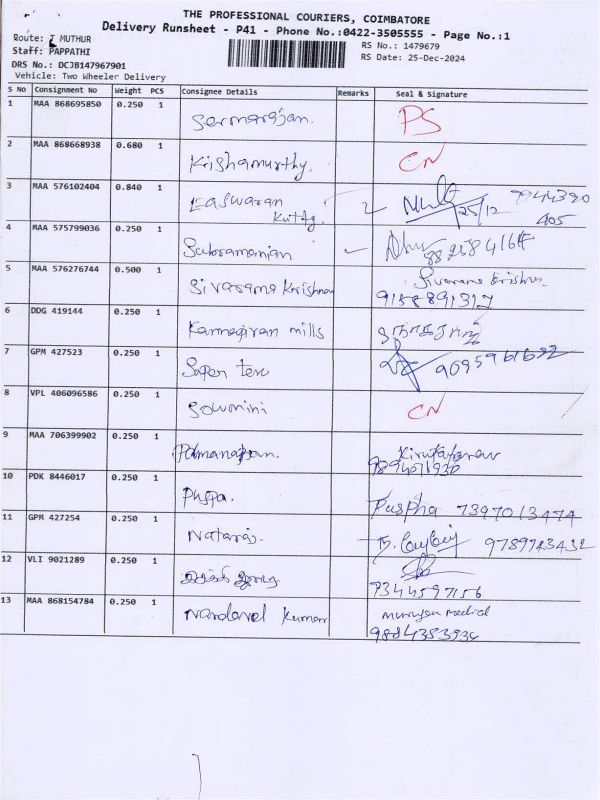 THE PROFESSIONAL COURIERS, COIMBATORE
Delivery Runsheet - P41 - Phone No.:0422-3505555 - Page No.:1
Route: I MUTHUR
RS No.: 1479679
Staff: PAPPATHI
RS Date: 25-Dec-2024
DRS No.: DCJB147967901
Vehicle: Two Wheeler Delivery
S No Consignment No Weight PCS Consignee Details Remarks Seal & Signature
1 MAA 868695850 0.250 1 PS
2 MAA 868668938 0.680 1 Krishamurthy. CN
3 MAA 576102404 0.840 1 Easwaran
Kutty. 25/12
405
4 MAA 575799036 0.250 1 Subramanian
5 MAA 576276744 0.500 1 Sivarama Krishnan
9188891317
6 DDG 419144 0.250 1 mills
7 GPM 427523 0.250 1 Super tex
8 VPL 406096586 0.250 1 Sowmini CN
9 MAA 706399902 0.250 1
10 PDK 8446017 0.250 1 Puspa. Puspha 7397013474
11 GPM 427254 0.250 1 Nataraj.
12 VLI 9021289 0.250 1
7344597156
13 MAA 868154784 0.250 1 Kumar Murugan medical